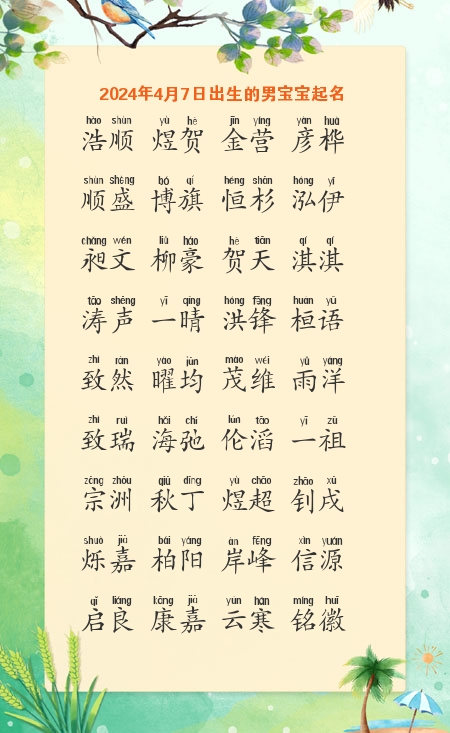 2024年4月7日出生的男宝宝起名
hào shùn yù hè jīn yíng yàn huà
浩顺 煜贺 金营 彦桦
shùn shèng bó qí héng shān hóng yī
顺盛 博旗 恒杉 泓伊
chǎng wén liǔ háo hè tiān qí qí
昶文 柳豪 贺天 淇淇
tāo shēng yī qíng hóng fēng huán yǔ
涛声 一晴 洪锋 桓语
zhì rán yào jūn mào wéi yǔ yáng
致然 曜均 茂维 雨洋
zhì ruì hǎi chí lún tāo yī zǔ
致瑞 海弛 伦滔 一祖
zōng zhōu qiū dīng yù chāo zhāo xū
宗洲 秋丁 煜超 钊戌
shuò jiā bǎi yáng àn fēng xìn yuán
烁嘉 柏阳 岸峰 信源
qǐ liáng kāng jiā yún hán míng huī
启良 康嘉 云寒 铭徽